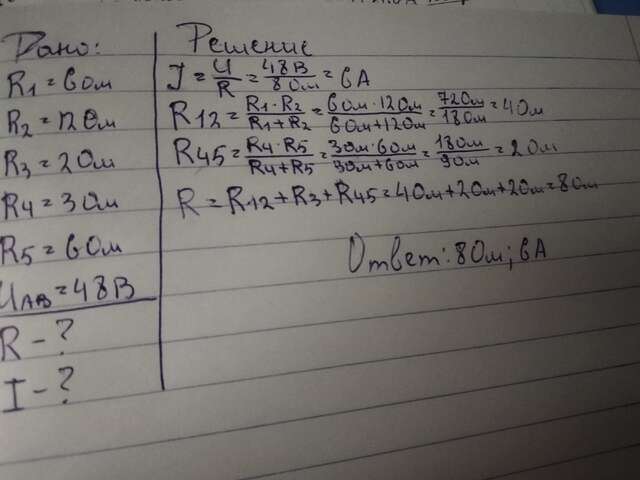 Дано:
R1 = 6 Ом
R2 = 12 Ом
R3 = 2 Ом
R4 = 3 Ом
R5 = 6 Ом
UAB = 48 В
R - ?
I - ?
Решение
I = U/R = 48 В/8 Ом = 6 А
R12 = R1·R2/R1+R2 = 6 Ом·12 Ом/6 Ом+12 Ом = 72 Ом/18 Ом = 4 Ом
R45 = R4·R5/R4+R5 = 3 Ом·6 Ом/3 Ом+6 Ом = 18 Ом/9 Ом = 2 Ом
R = R12+R3+R45 = 4 Ом+2 Ом+2 Ом = 8 Ом
Ответ: 8 Ом; 6 А